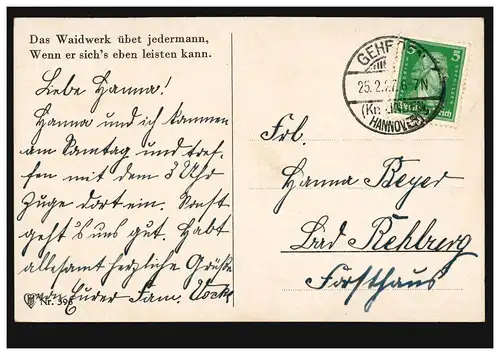 Das Waidwerk übet jedermann,
Wenn er sich's eben leisten kann.
Liebe Hanna!
Hanna und ich kommen
am Samstag und tref-
fen mit dem 3 Uhr
Zuge dort ein. Sonst
geht's uns gut. Habt
allesamt herzliche Grüße
von Eurer Fam.
Nr. 396
25.2.27. 6-7N
HANNOVER
5
5
Frl.
Hanna Beyer
Bad Rehburg
Forsthaus